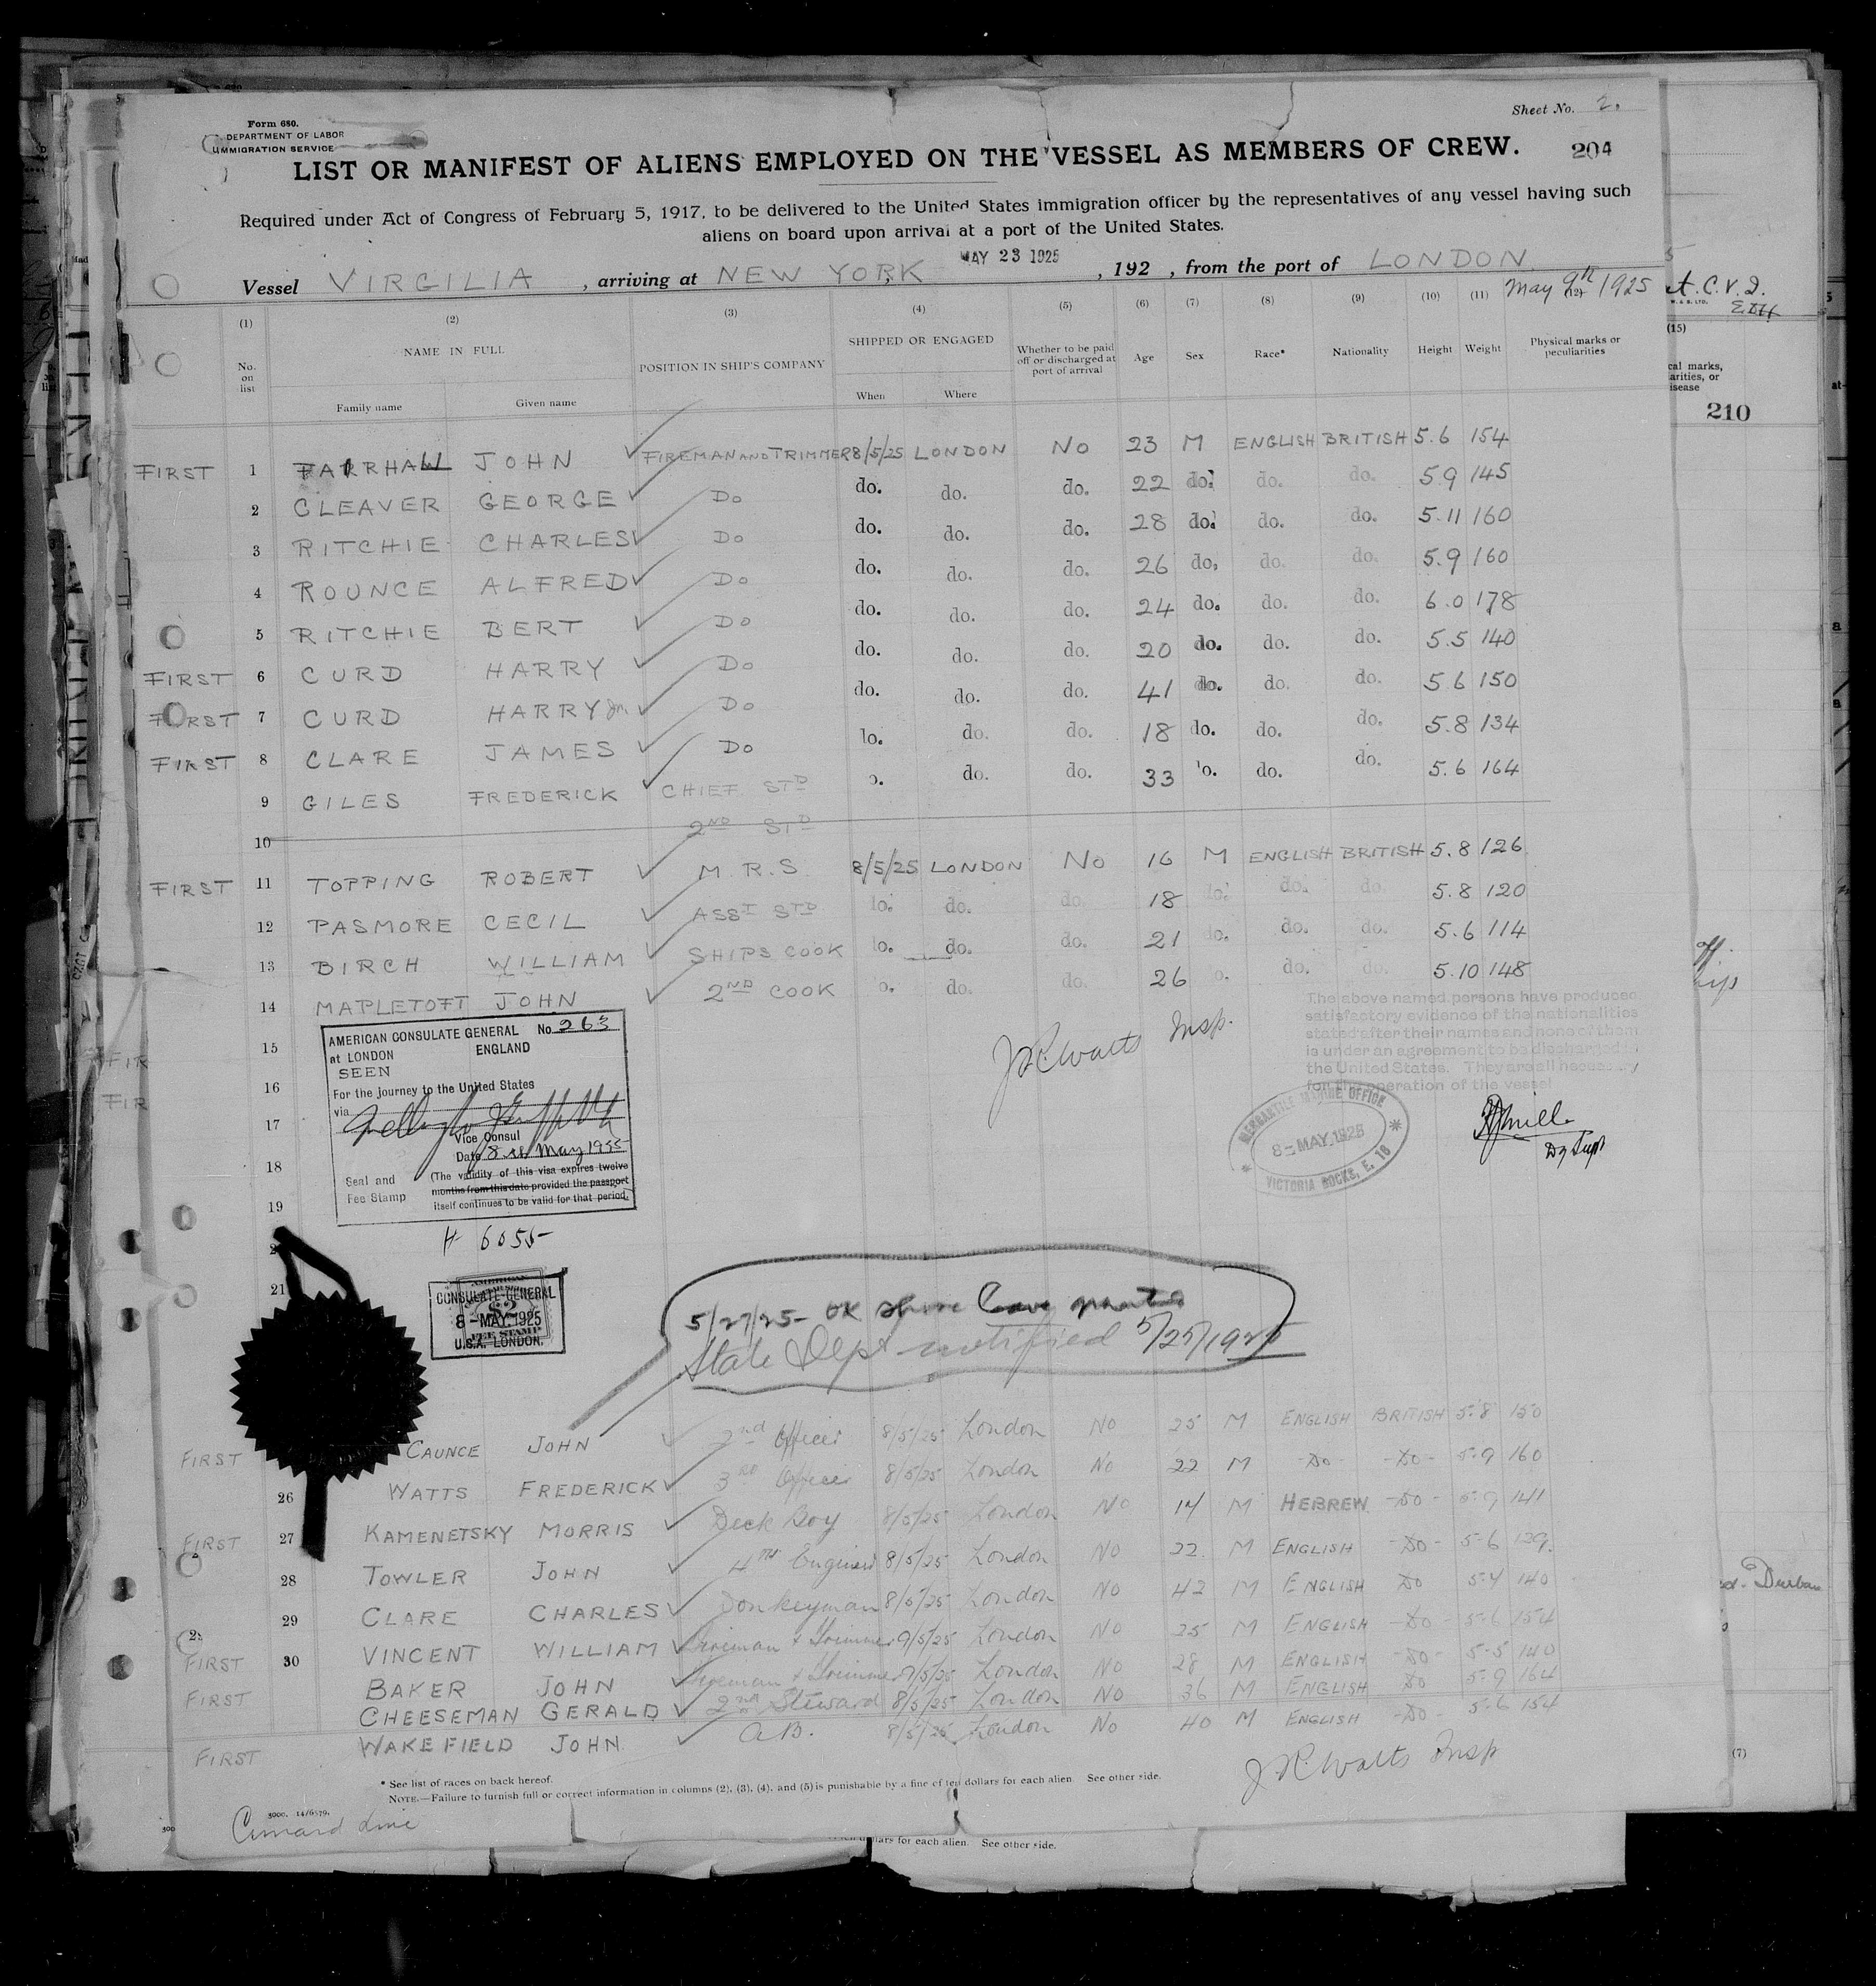 Form 680.
DEPARTMENT OF LABOR
IMMIGRATION SERVICE
Sheet No. 2.
LIST OR MANIFEST OF ALIENS EMPLOYED ON THE VESSEL AS MEMBERS OF CREW.
204
Required under Act of Congress of February 5, 1917, to be delivered to the United States immigration officer by the representatives of any vessel having such
aliens on board upon arrival at a port of the United States.
MAY 23 1925
Vessel VIRGILIA, arriving at NEW YORK, 192 , from the port of LONDON
May 9th 1925
(1) (2) (3) (4) (5) (6) (7) (8) (9) (10) (11) (12)
No. on list NAME IN FULL POSITION IN SHIP'S COMPANY SHIPPED OR ENGAGED Whether to be paid off or discharged at port of arrival Age Sex Race* Nationality Height Weight Physical marks or peculiarities
Family name Given name When Where
FIRST 1 JOHN FIREMAN AND TRIMMER 8/5/25 LONDON No 23 M ENGLISH BRITISH 5.6 154
2 CLEAVER GEORGE Do do. do. do. 22 do. do. do. 5.9 145
3 RITCHIE CHARLES Do do. do. do. 28 do. do. do. 5.11 160
4 ROUNCE ALFRED Do do. do. do. 26 do. do. do. 5.9 160
5 RITCHIE BERT Do do. do. do. 24 do. do. do. 6.0 178
FIRST 6 CURD HARRY Do do. do. do. 20 do. do. do. 5.5 140
FIRST 7 CURD HARRY Jn. Do do. do. do. 41 do. do. do. 5.6 150
FIRST 8 CLARE JAMES Do lo. do. do. 18 do. do. do. 5.8 134
9 GILES FREDERICK CHIEF STD o. do. do. 33 'o. do. do. 5.6 164
10 2ND STD
FIRST 11 TOPPING ROBERT M.R.S 8/5/25 LONDON No 16 M ENGLISH BRITISH 5.8 126
12 PASMORE CECIL ASST STD lo. do. do. 18 lo. do. do. 5.8 120
13 BIRCH WILLIAM SHIPS COOK lo. do. do. 21 do. do. do. 5.6 114
14 MAPLETOFT JOHN 2ND COOK o. do. do. 26 o. do. do. 5.10 148
The above named persons have produced
satisfactory evidence of the nationalities
stated after their names and none of them
is under an agreement to be discharged in
the United States. They are all necessary
for the operation of the vessel
J R Watts Insp.
15
16
17
18
19
21
AMERICAN CONSULATE GENERAL No. 263
at LONDON ENGLAND
SEEN
For the journey to the United States
via
Vice Consul
Date 8th May 1925
Seal and Fee Stamp
(The validity of this visa expires twelve
months from this date provided the passport
itself continues to be valid for that period.
MERCANTILE MARINE OFFICE
8 - MAY. 1925
VICTORIA DOCKS, E. 16
Dy Supt
# 6055
AMERICAN
CONSULATE-GENERAL
$2
8 - MAY. 1925
FEE STAMP
U.S.A. LONDON.
5/27/25 - OK shore leave granted
State Dept notified 5/25/1925
FIRST CAUNCE JOHN 2nd Officer 8/5/25 London No 25 M ENGLISH BRITISH 5.8 150
26 WATTS FREDERICK 3RD Officer 8/5/25 London No 22 M -Do- -Do- 5-9 160
FIRST 27 KAMENETSKY MORRIS Deck Boy 8/5/25 London No 14 M HEBREW -Do- 5-9 141
28 TOWLER JOHN 4th Engineer 8/5/25 London No 22 M ENGLISH -Do- 5-6 139.
29 CLARE CHARLES Donkeyman 8/5/25 London No 42 M ENGLISH Do 5.4 140
FIRST 30 VINCENT WILLIAM Fireman & Trimmer 9/5/25 London No 25 M ENGLISH -Do- 5-6 154
FIRST BAKER JOHN Fireman & Trimmer 9/5/25 London No 28 M ENGLISH -Do- 5-5 140
CHEESEMAN GERALD 2nd Steward 8/5/25 London No 36 M ENGLISH Do 5-9 164
FIRST WAKEFIELD JOHN A.B. 8/5/25 London No 40 M ENGLISH -Do- 5-6 154
J R Watts Insp
* See list of races on back hereof.
NOTE.—Failure to furnish full or correct information in columns (2), (3), (4), and (5) is punishable by a fine of ten dollars for each alien. See other side.
3000. 14/6579.
Cunard Line
(15)
210
Durban
(7)
for each alien. See other side.